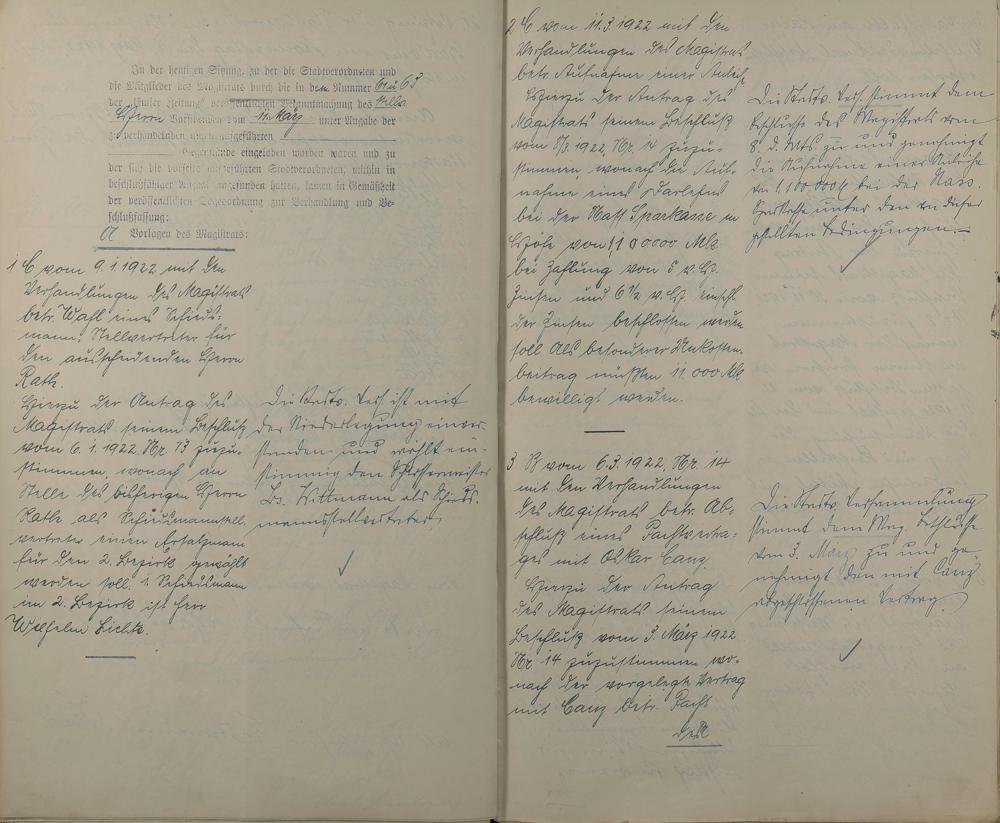 In der heutigen Sitzung, zu der die Stadtverordneten und
die Mitglieder des Magistrats durch die in den Nummer 61 u 63
der Zeitung" Bekanntmachung des
Herrn Vorstehers vom 11. März unter Angabe der
zu verhandelnden
Gegenstände eingeladen worden waren und zu
der sich die Stadtverordneten, mithin in
beschlußfähiger Anzahl eingefunden hatten, kamen in Gemäßheit
der veröffentlichten Tagesordnung zur Verhandlung und Be-
schlußfassung:
a Vorlagen des Magistrats:
1 C vom 9.1.1922 mit den
Verhandlungen des Magistrats
betr. Wahl eines Schieds-
mann: Stellvertreter für
den ausscheidenden Herrn
Rath.
Hierzu der Antrag des
Magistrats seinem Beschluß
vom 6.1.1922 Nr. 13 zuzu-
stimmen, wonach an
Stelle des bisherigen Herrn
Rath als Schiedsmannstell
vertreter einen Ersatzmann
für den 2. Bezirk gewählt
werden soll. 1. Schiedsmann
im 2. Bezirk ist Herr
Wilhelm
Die Stadtv. Vers. ist mit
der Niederlegung einver-
standen und wählt ein-
stimmig den Schlossermeister
Wittmann als Schieds-
mannsstellvertreter.
2 C vom 11.3.1922 mit den
Verhandlungen des Magistrats
betr. Aufnahme einer Anleihe
Hierzu der Antrag des
Magistrats seinem Beschluß
vom 8/3.1922, Nr. 14 zuzu-
stimmen, wonach die Auf-
nahme eines Darlehns
bei der Nass. Sparkasse in
Höhe von 1100000 Mk
bei Zahlung von 5 v.H.
Zinsen und 6½ v.H. einschl
der Zinsen beschlossen werden
soll. Als besonderer Unkosten-
beitrag müßten 11 000 Mk
bewilligt werden.
Die Stadtv. Vers. stimmt dem
Beschlusse des Magistrats vom
8. d. Mts. zu und genehmigt
die Aufnahme einer Anleihe
von 1.100 000 M bei der Nass.
Sparkasse unter den von dieser
gestellten Bedingungen.
3 B vom 6.3.1922, Nr. 14
mit den Verhandlungen
des Magistrats betr. Ab-
schluß eines Pachtvertra-
ges mit Oskar Canz
Hierzu der Antrag
des Magistrats seinem
Beschluß vom 3. März 1922
Nr. 14 zuzustimmen wo-
nach der vorgelegte Vertrag
mit Canz betr. Pacht
des
Die Stadtv. Versammlung
stimmt dem Mag. beschlusse
vom 3. März zu und ge-
nehmigt den mit Canz
abgeschlossenen Vertrag.